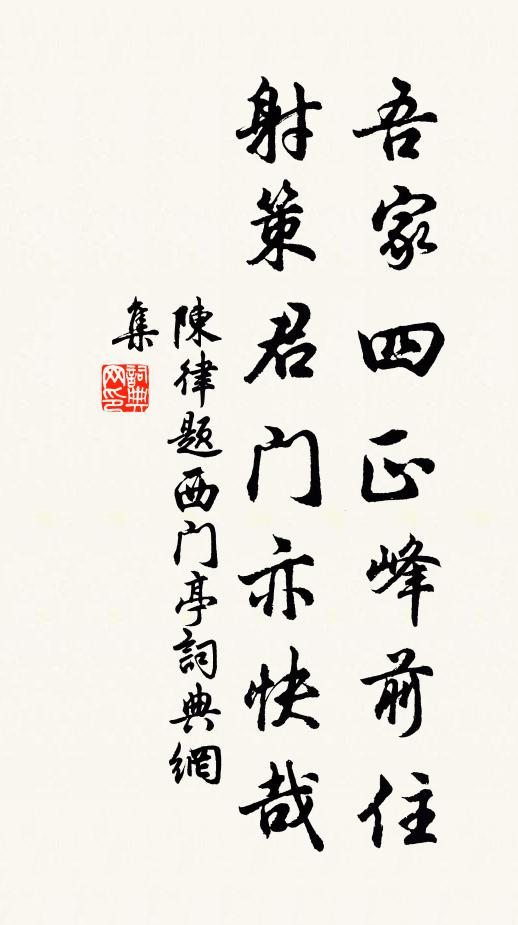 吾家四正峰前住
射策君门亦快哉
陳律题西门亭詞典網
集
詞典
网印